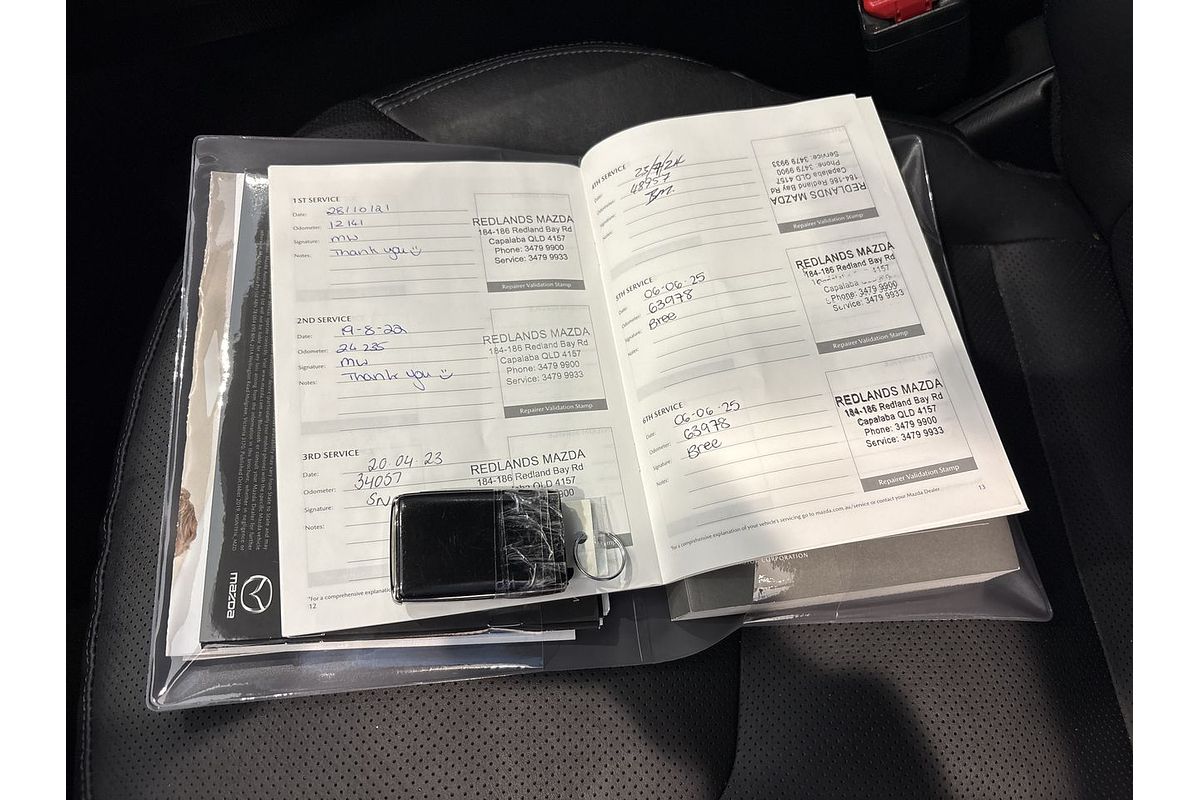 1ST SERVICE
Date: 28/10/21
Odometer: 12141
Signature: MW
Notes: Thank you
REDLANDS MAZDA
184-186 Redland Bay Rd
Capalaba QLD 4157
Phone: 3479 9900
Service: 3479 9933
Repairer Validation Stamp
2ND SERVICE
Date: 19-8-22
Odometer: 24235
Signature: MW
Notes: Thank you
REDLANDS MAZDA
184-186 Redland Bay Rd
Capalaba QLD 4157
Phone: 3479 9900
Service: 3479 9933
Repairer Validation Stamp
3RD SERVICE
Date: 20.04.23
Odometer: 34057
Signature: SN
Notes:
REDLANDS MAZDA
184-186 Redland Bay Rd
Capalaba QLD 4157
*For a comprehensive
12
4TH SERVICE
Date: 25/7/24
Odometer: 48957
Signature: BM.
Notes:
REDLANDS MAZDA
184-186 Redland Bay Rd
Capalaba QLD 4157
Phone: 3479 9900
Service: 3479 9933
Repairer Validation Stamp
5TH SERVICE
Date: 06.06.25
Odometer: 63978
Signature: Bree
Notes:
REDLANDS MAZDA
184-186 Redland Bay Rd
Capalaba 4157
Phone: 3479 9900
Service: 3479 9933
Repairer Validation Stamp
6TH SERVICE
Date: 06-06-25
Odometer: 63978
Signature: Bree
Notes:
REDLANDS MAZDA
184-186 Redland Bay Rd
Capalaba QLD 4157
Phone: 3479 9900
Service: 3479 9933
Repairer Validation Stamp
*For a comprehensive explanation of your vehicle's servicing go to mazda.com.au/service or contact your Mazda Dealer
13
mazda
CORPORATION